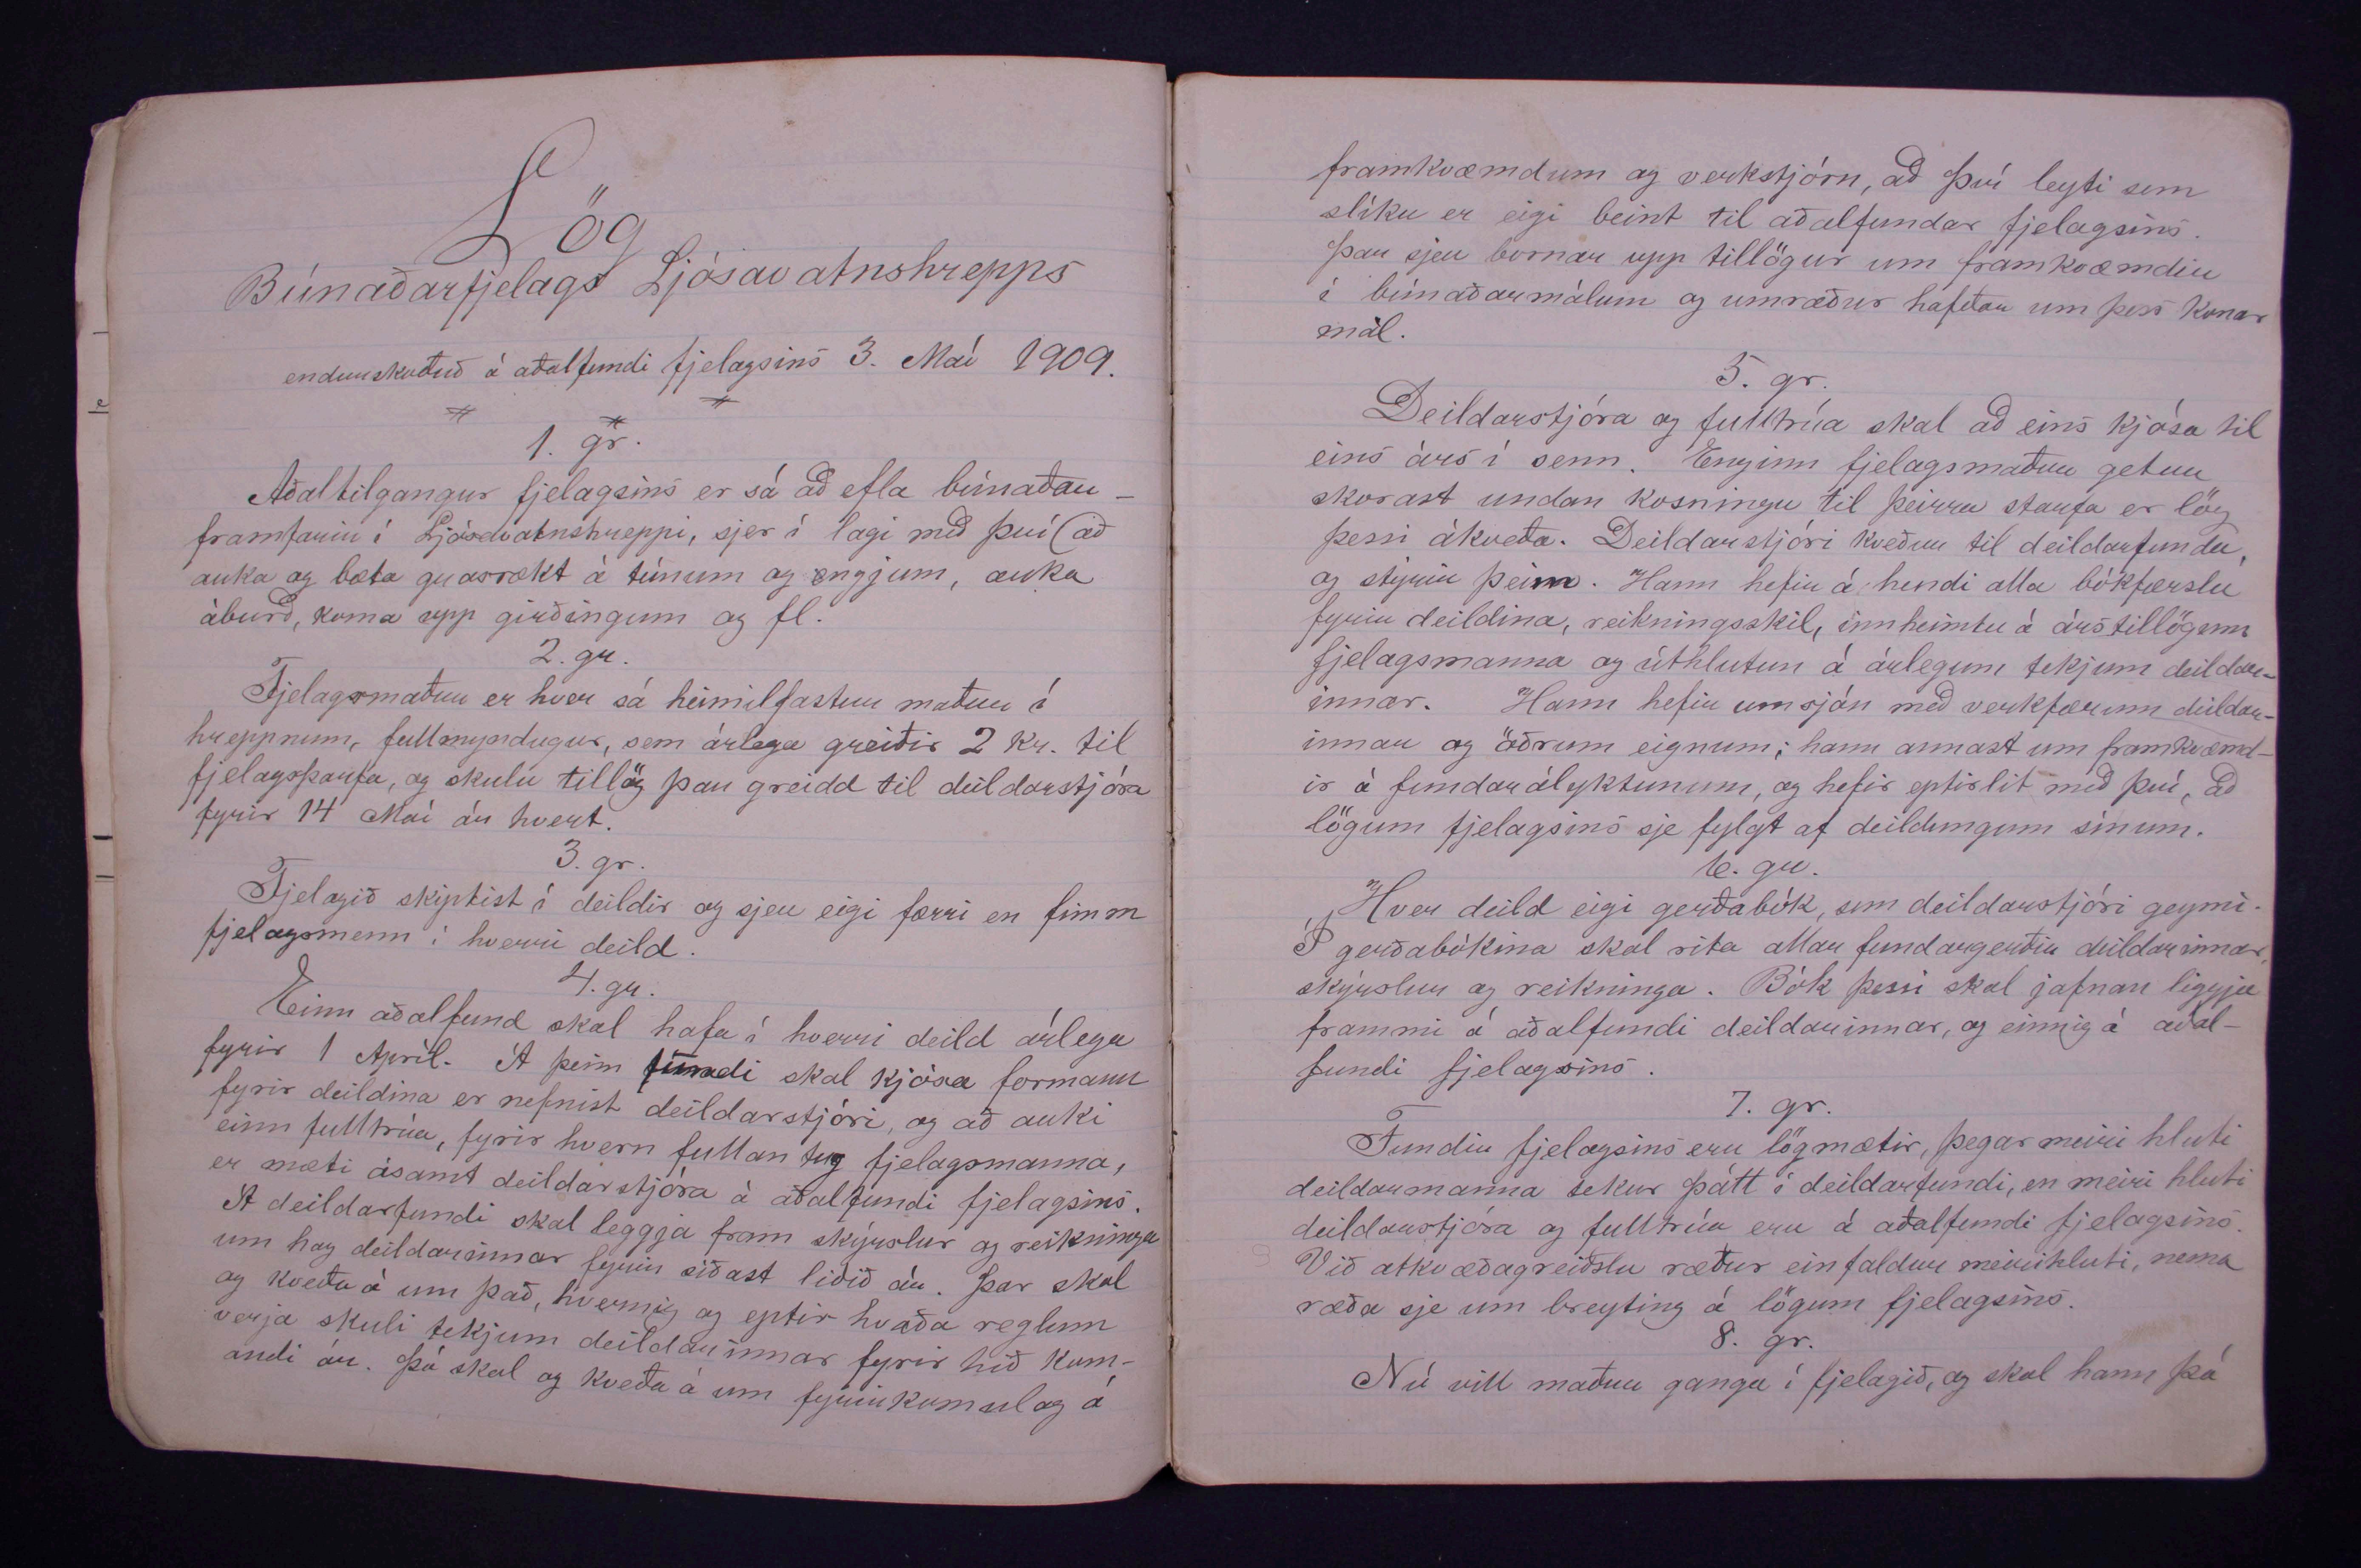 Lög
Búnaðarfjelags Ljósavatnshrepps
endurskoðuð á aðalfundi fjelagsins 3. Maí 1909.
1. gr.
Aðaltilgangur fjelagsins er sá að efla búnaðar-
framfarir í Ljósavatnshreppi, sjer í lagi með því (að
auka og bæta grasrækt á túnum og engjum, auka
áburð, koma upp girðingum og fl.
2. gr.
Fjelagsmaður er hver sá heimilfastur maður í
hreppnum, fullmyndugur, sem árlega greiðir 2 kr. til
fjelagsþarfa, og skulu tillög þau greidd til deildarstjóra
fyrir 14 Maí ár hvert.
3. gr.
Fjelagið skiptist í deildir og sjeu eigi færri en fimm
fjelagsmenn í hverri deild.
4. gr.
Einn aðalfund skal hafa í hverri deild árlega
fyrir 1 Apríl. Á þeim fundi skal kjósa formann
fyrir deildina er nefnist deildarstjóri, og að auki
einn fulltrúa, fyrir hvern fullan tug fjelagsmanna,
er mæti ásamt deildarstjóra á aðalfundi fjelagsins.
Á deildarfundi skal leggja fram skýrslur og reikninga
um hag deildarinnar fyrir síðast liðið ár. Þar skal
og kveða á um það, hvernig og eptir hvaða reglum
verja skuli tekjum deildarinnar fyrir hið kom-
andi ár. Þá skal og kveða á um fyrirkomulag á
framkvæmdum og verkstjórn, að því leyti sem
slíku er eigi beint til aðalfundar fjelagsins.
Þar sjeu bornar upp tillögur um framkvæmdir
í búnaðarmálum og umræður hafðar um þess konar
mál.
5. gr.
Deildarstjóra og fulltrúa skal að eins kjósa til
eins árs í senn. Enginn fjelagsmaður getur
skorast undan kosningu til þeirra starfa er lög
þessi ákveða. Deildarstjóri kveður til deildarfunda,
og stýrir þeim. Hann hefir á hendi alla bókfærslu
fyrir deildina, reikningsskil, innheimtu á árstillögum
fjelagsmanna og úthlutun á árlegum tekjum deildar-
innar. Hann hefir umsjón með verkfærum deildar-
innar og öðrum eignum; hann annast um framkvæmd-
ir á fundarályktunum, og hefir eptirlit með því, að
lögum fjelagsins sje fylgt af deildungum sínum.
6. gr.
Hver deild eigi gerðabók, sem deildarstjóri geymi.
Í gerðabókina skal rita allar fundargerðir deildarinnar,
skýrslur og reikninga. Bók þessi skal jafnan liggja
frammi á aðalfundi deildarinnar, og einnig á aðal-
fundi fjelagsins.
7. gr.
Fundir fjelagsins eru lögmætir, þegar meiri hluti
deildarmanna tekur þátt í deildarfundi, en meiri hluti
deildarstjóra og fulltrúa eru á aðalfundi fjelagsins.
Við atkvæðagreiðslu ræður einfaldur meirihluti, nema
ræða sje um breyting á lögum fjelagsins.
8. gr.
Nú vill maður ganga í fjelagið, og skal hann þá